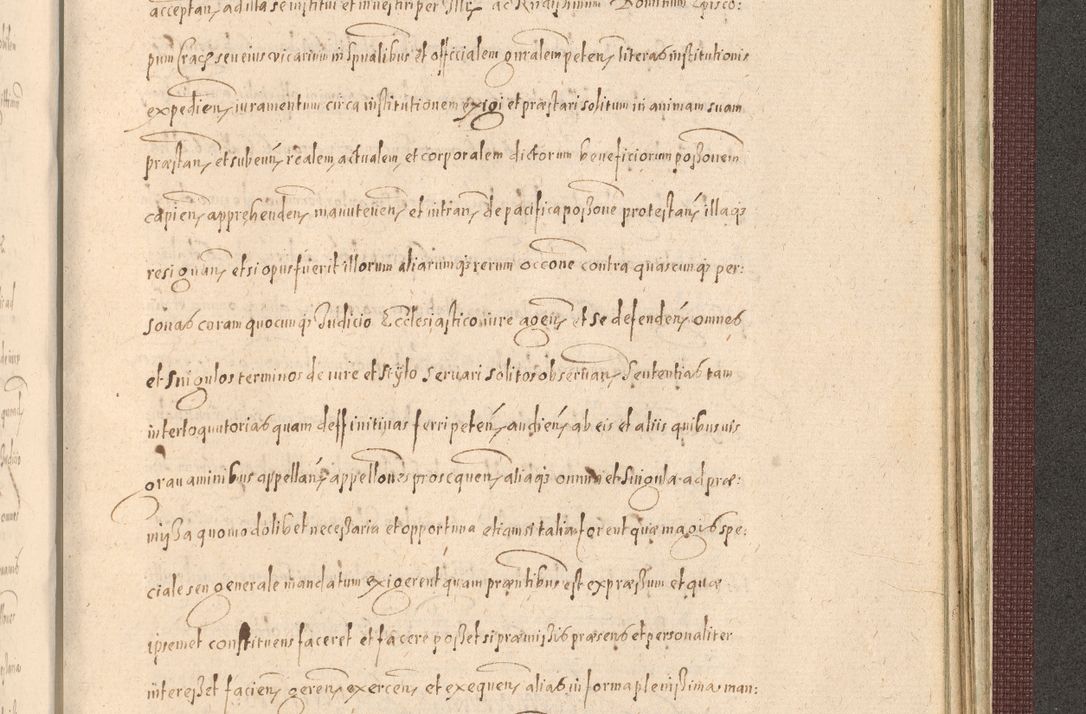 acceptan, ad illa se institui et investiri per Illrm ac Rndissimum Dominum Episco:
pum Crac: seu eius vicarium in Spualibus et officialem gnralem peten, literas institutionis
expedien, iuramentum circa institutionem exigi et præstari solitum in animam suam
præstan, et subeun, realem actualem, et corporalem dictorum beneficiorum poßonem
capien, apprehenden, manutenen, et intran, de pacifica poßone protestan, illaq3
resignan, et si opus fuerit illorum aliarumq3 rerum occone contra quascunq3 per:
sonas coram quocunq3 Judicio Ecclesiastico iure agen, et se defenden, omnes
et singulos terminos de iure et stÿlo servari solitos observan, Sententias tam
interloquutorias quam deffinitivas ferri peten, audien, ab eis et aliis quibusvis
gravaminibus appellan, appellones prosequen, aliaq3 omnia et singula ad præ:
mißa quomodolibet necessaria et opportuna etiamsi talia forent quæ magis spe:
ciale seu generale mandatum exigerent quam præntibus est expræßum et quæ
ipsemet constituens faceret et facere poßet si præmißis præsens et personaliter
intereßet facien, geren, exercen, et exequen, alias in forma plenißima man: